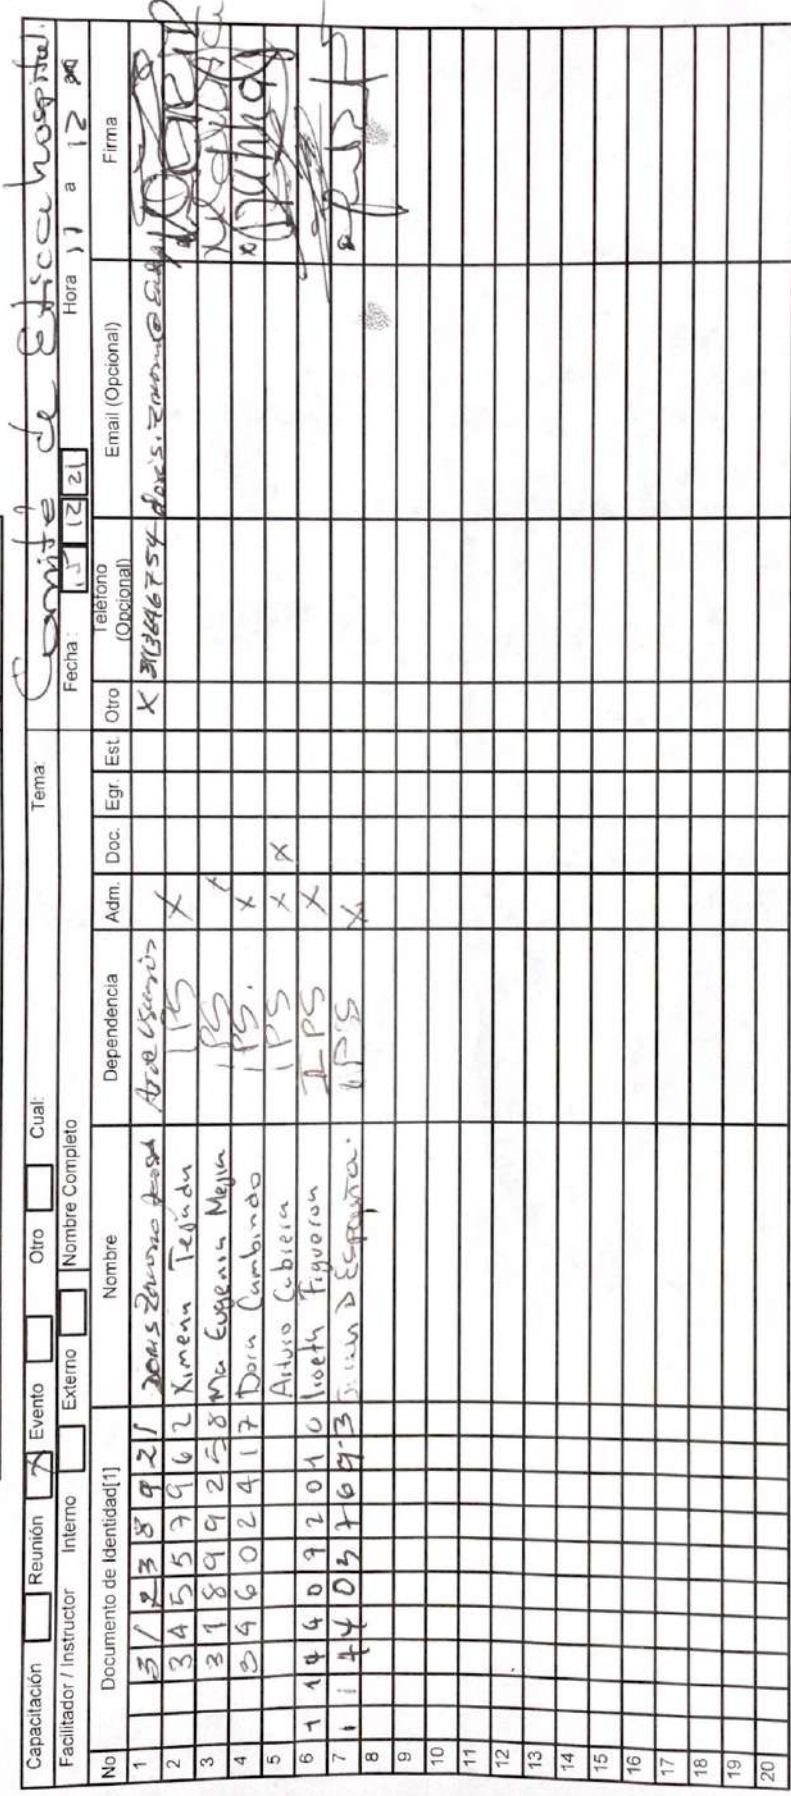 Capacitación Reunión X Evento Otro Cual: Tema: Comité de Etica hospital.
Facilitador / Instructor Interno Externo Nombre Completo Fecha: 15 12 21 Hora 11 a 12
No Documento de Identidad[1] Nombre Dependencia Adm. Doc. Egr. Est. Otro Teléfono (Opcional) Email (Opcional) Firma
1 31238921 Doris X
2 34557962 Ximena Tejada IPS X
3 31899258 Ma Eugenia Mejia IPS x
4 34602417 Dora Cambindo IPS. x
5 Arturo Cabrera IPS x x
6 1144092010 liseth Figueroa IPS X
7 D España. IPS X
8
9
10
11
12
13
14
15
16
17
18
19
20